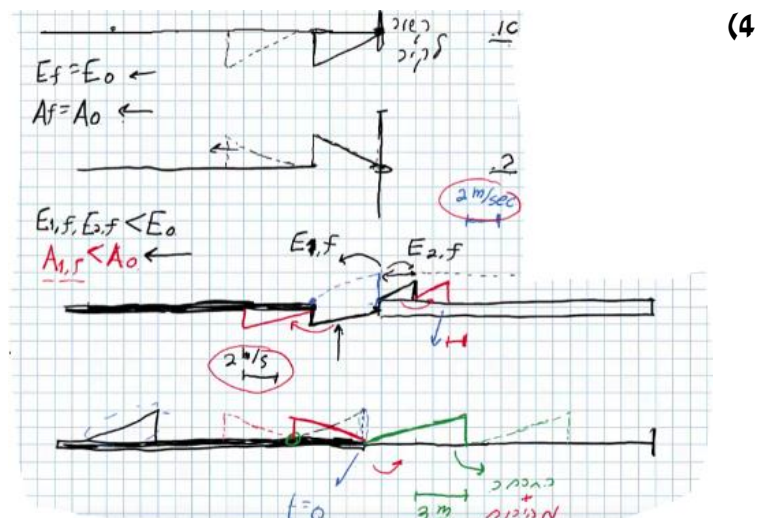 (4
.1c
Ef = E₀ ←
Af = A₀ ←
.2
2 m/sec
E₁,f, E₂,f < E₀
A₁,f < A₀ ←
E₁,f
E₂,f
2 m/s
t=0
3 m
+